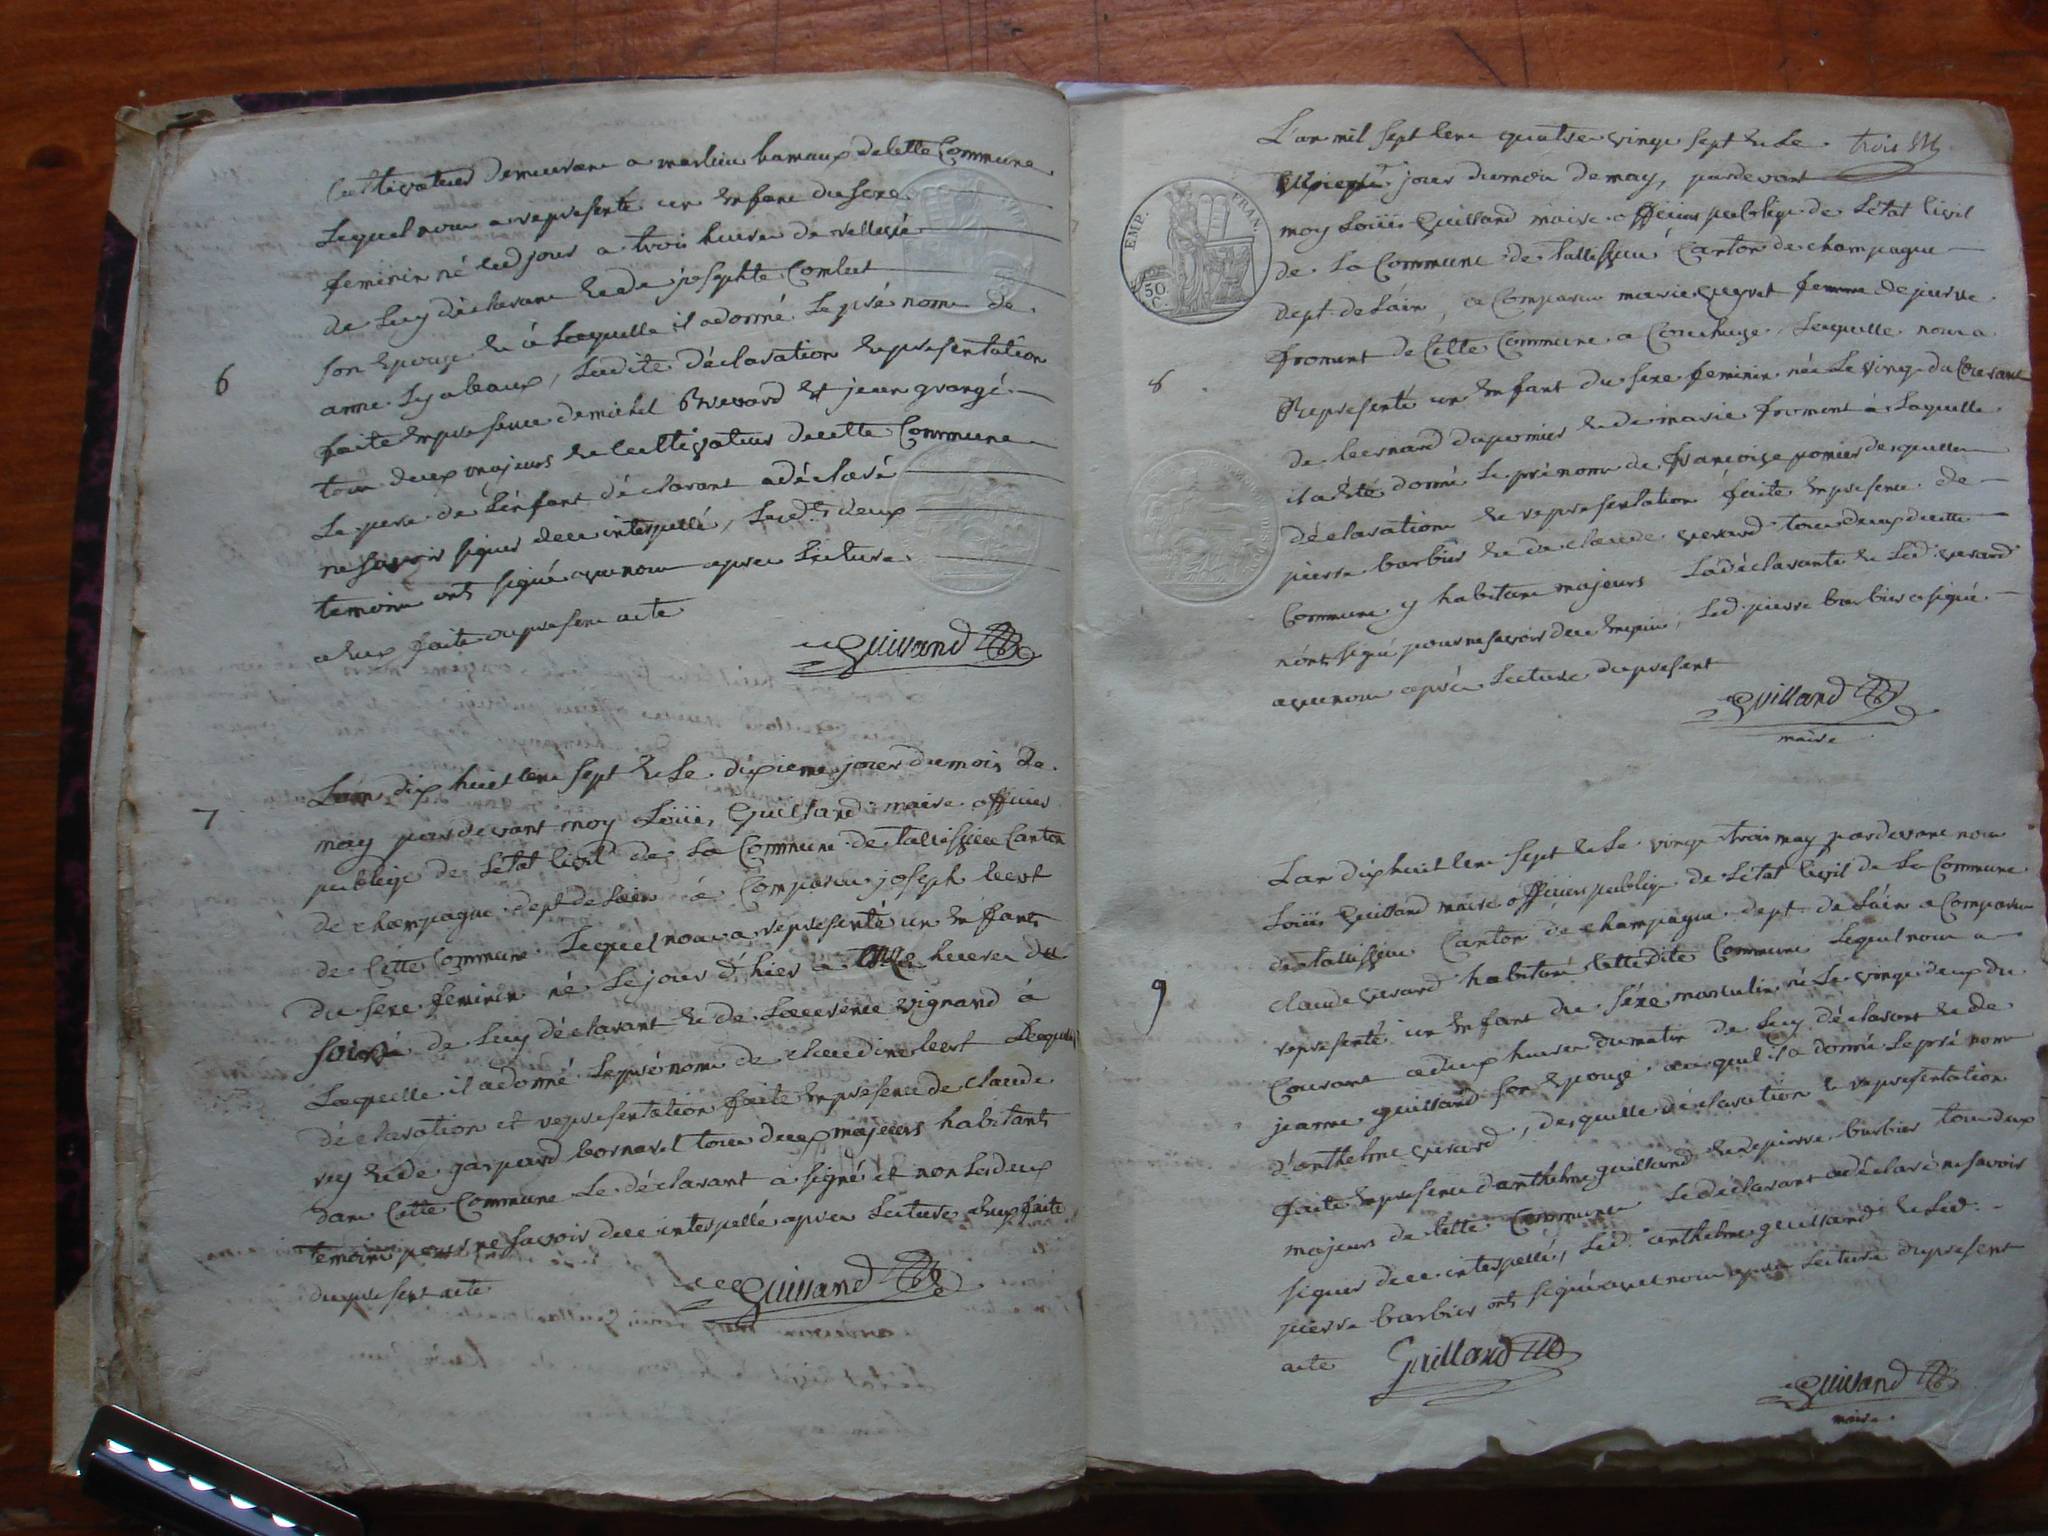 Cultivateur demeurant a marlieu hamaux de cette Commune
Lequel nous a representé un Enfant du sexe
feminin né led jour a trois heures de
de Luy déclarant & de josephte Combet
son Epouse et à Laquelle il a donné Le pré nom de
6
anne ladite déclaration & representation
faite En presence de michel Brevard & jean grangé
tous deux majeurs & cultivateur de cette Commune
Le pere de L'enfant déclarant a déclaré
ne savoir signer de ce interpellé, Led.ts deux
temoins ont signé avec nous apres Lecture
a Eux faite du present acte
Guilland
7
L'an dix huit cent sept & Le dixieme jour du mois de
may pardevant moy Louis Guilland maire officier
publiqe de L'état Civil de La Commune de tallissieu Canton
de champagne dept de Lain à Comparu joseph
de Cette Commune Lequel nous a representé un Enfant
du sexe feminin né Le jour d'hier a heures du
soir de Luy déclarant & de Laurence vignand à
Laquelle il a donné Le pré nom de claudine
déclaration et representation faite En présence de Claude
rey & de gaspard bornarel tous deux majeurs habitants
dans Cette Commune Le déclarant a signé et non Les deux
temoins pour ne savoir de ce interpellé apres Lecture a Eux faite
du present acte
Guilland
L'an mil sept cent quatre vingt sept & Le trois
jour du mois de may, pardevant
moy Louis Guilland maire officier publiqe de L'état Civil
EMP. FRAN.
50 C.
de La Commune de tallissieu Canton de champagne
dept. de Lain, a Comparu marie femme de pierre
froment de Cette Commune a Laquelle nous a
8
Representé un Enfant du sexe feminin née Le vingt du Courant
de bernard dupomier & de marie froment à Laquelle
il a été donné Le pré nom de françoise pomier desquelles
déclaration & representation faite En presence de
pierre barbier & de claude verard tous deux de cette
Commune y habitant majeurs La déclarante & Led. verard
n'ont signé pour ne savoir de ce Enquis, Led. pierre barbier a signé
avec nous après Lecture du present
Guilland
maire
L'an dix huit cent sept & Le vingt trois may pardevant nous
Louis Guilland maire officier publiqe de L'état Civil de La Commune
de tallissieu Canton de champagne dept. de Lain a Comparu
9
claude verard habitant cette dite Commune Lequel nous a
representé un Enfant du séxe masculin né Le vingt deux du
Courant a deux heures du matin de Luy déclarant & de
jeanne guilland son Epouse auquel il a donné Le pré nom
d'anthelme verard, desquelle déclaration & representation
faite En presence d'anthelme guilland & de pierre barbier tous deux
majeurs de Cette Commune Le déclarant a déclaré ne savoir
signer de ce interpellé, Led. anthelme guilland & Led.
pierre barbier ont signé avec nous apres Lecture du present
acte Guilland
Guilland
maire